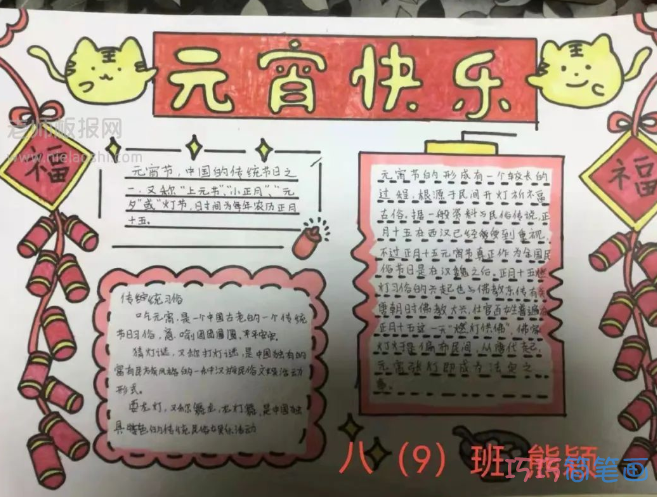 元宵快乐
福
福
老师板报网
www.hielaoshi.com
元宵节，中国的传统节日之
一，又称“上元节”“小正月”“元
夕”或“灯节，日时间为每年农历正月
十五。
元宵节的形成有一个较长的
过程，根源于民间开灯祈福
古俗。据一般资料与民俗传说，正
月十五在西汉已经受到重视。
不过正月十五元宵节真正作为全国民
俗节日是在汉魏之后。正月十五燃
灯习俗的兴起也与佛教东传有关
唐朝时佛教大兴，仕官百姓普遍
正月十五这一天“燃灯供佛”，佛家
灯火于是遍布民间，从唐代起，
元宵张灯即成为法定之
事。
传统习俗
吃元宵，是一个中国古老的一个传统
节日习俗，意
猜灯谜，又称打灯谜，是中国独有的
富有民族风格的一种汉族民俗文娱活动
形式。
耍龙灯，又称舞龙，龙灯舞，是中国独
具特色的传统民俗娱乐活动
八（9）班 熊颖
巧巧简笔画